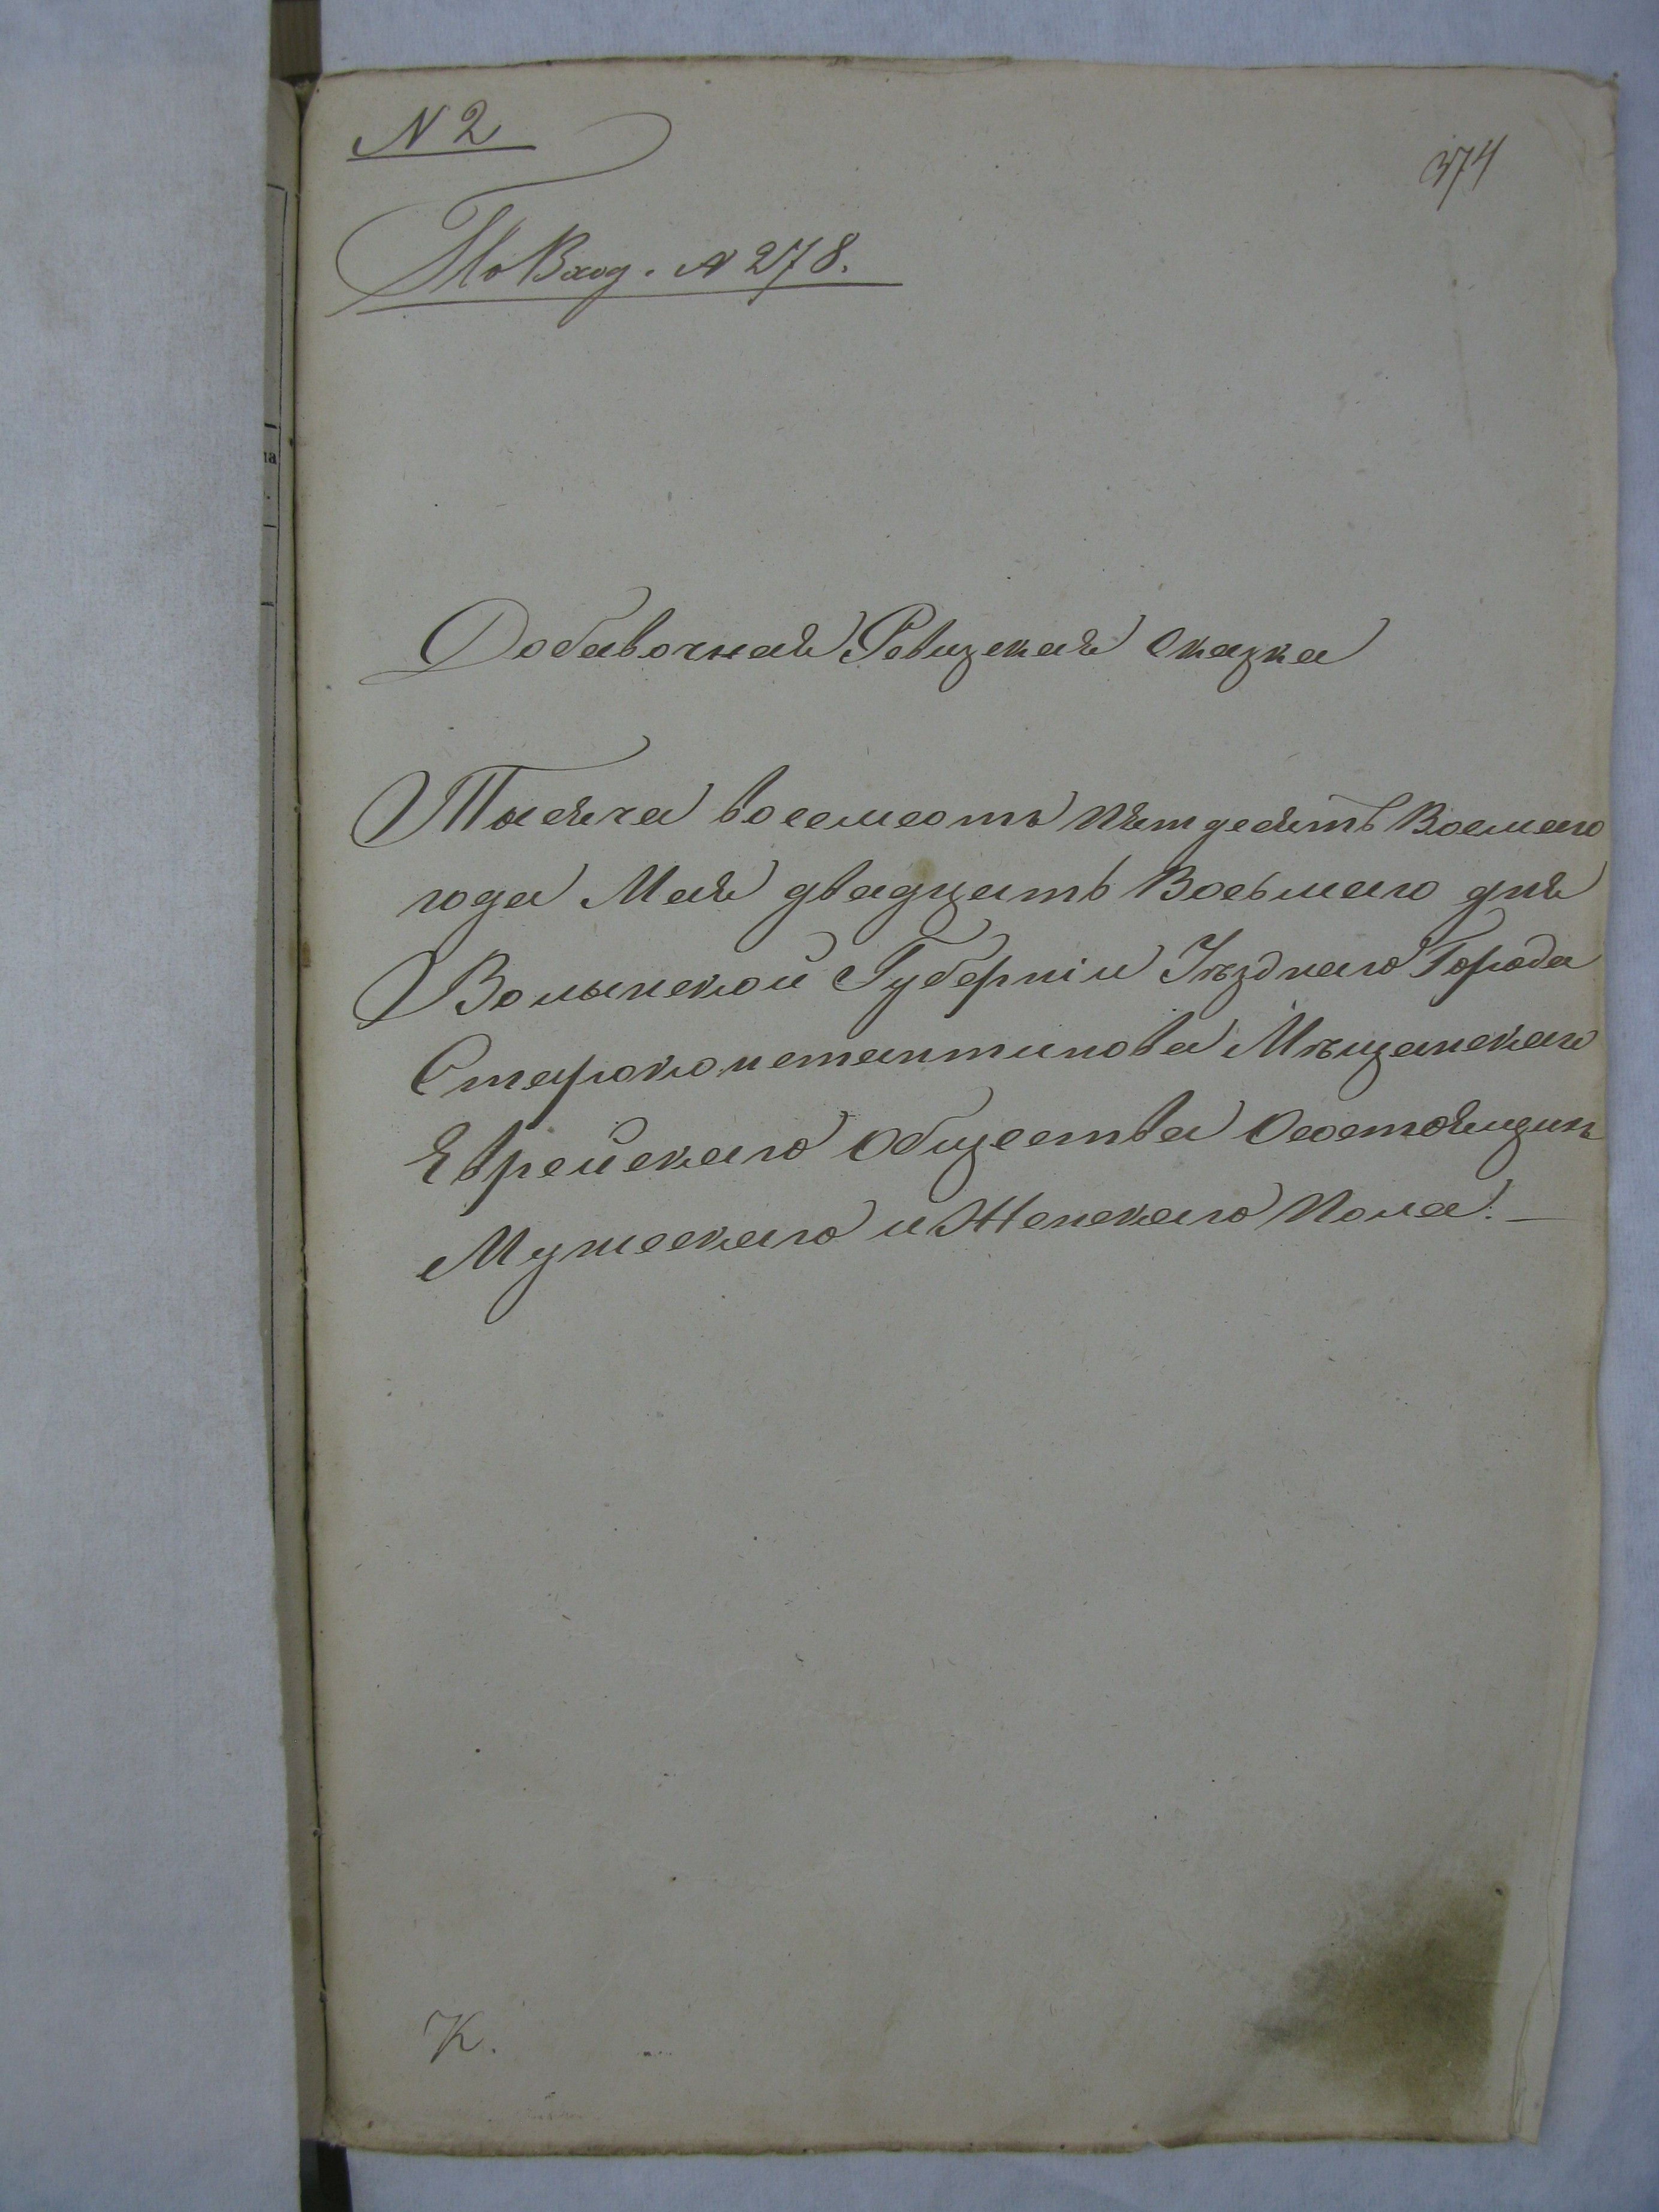 N 2
374
По Вход. N 278.
Добавочная Ревизская Сказка
Тысяча восемсотъ пятдесятъ Восмаго
года Мая двадцать Восьмаго дня
Волынской Губерніи Уѣзднаго Города
Староконстантинова Мѣщанскаго
Еврейскаго Общества Состоящихъ
Мужескаго и Женскаго Пола. —
К.
на